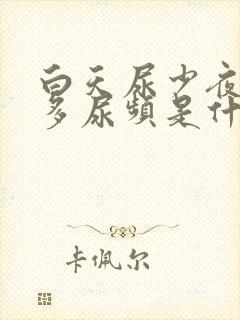 白天尿少夜
多尿频是什
卡佩尔